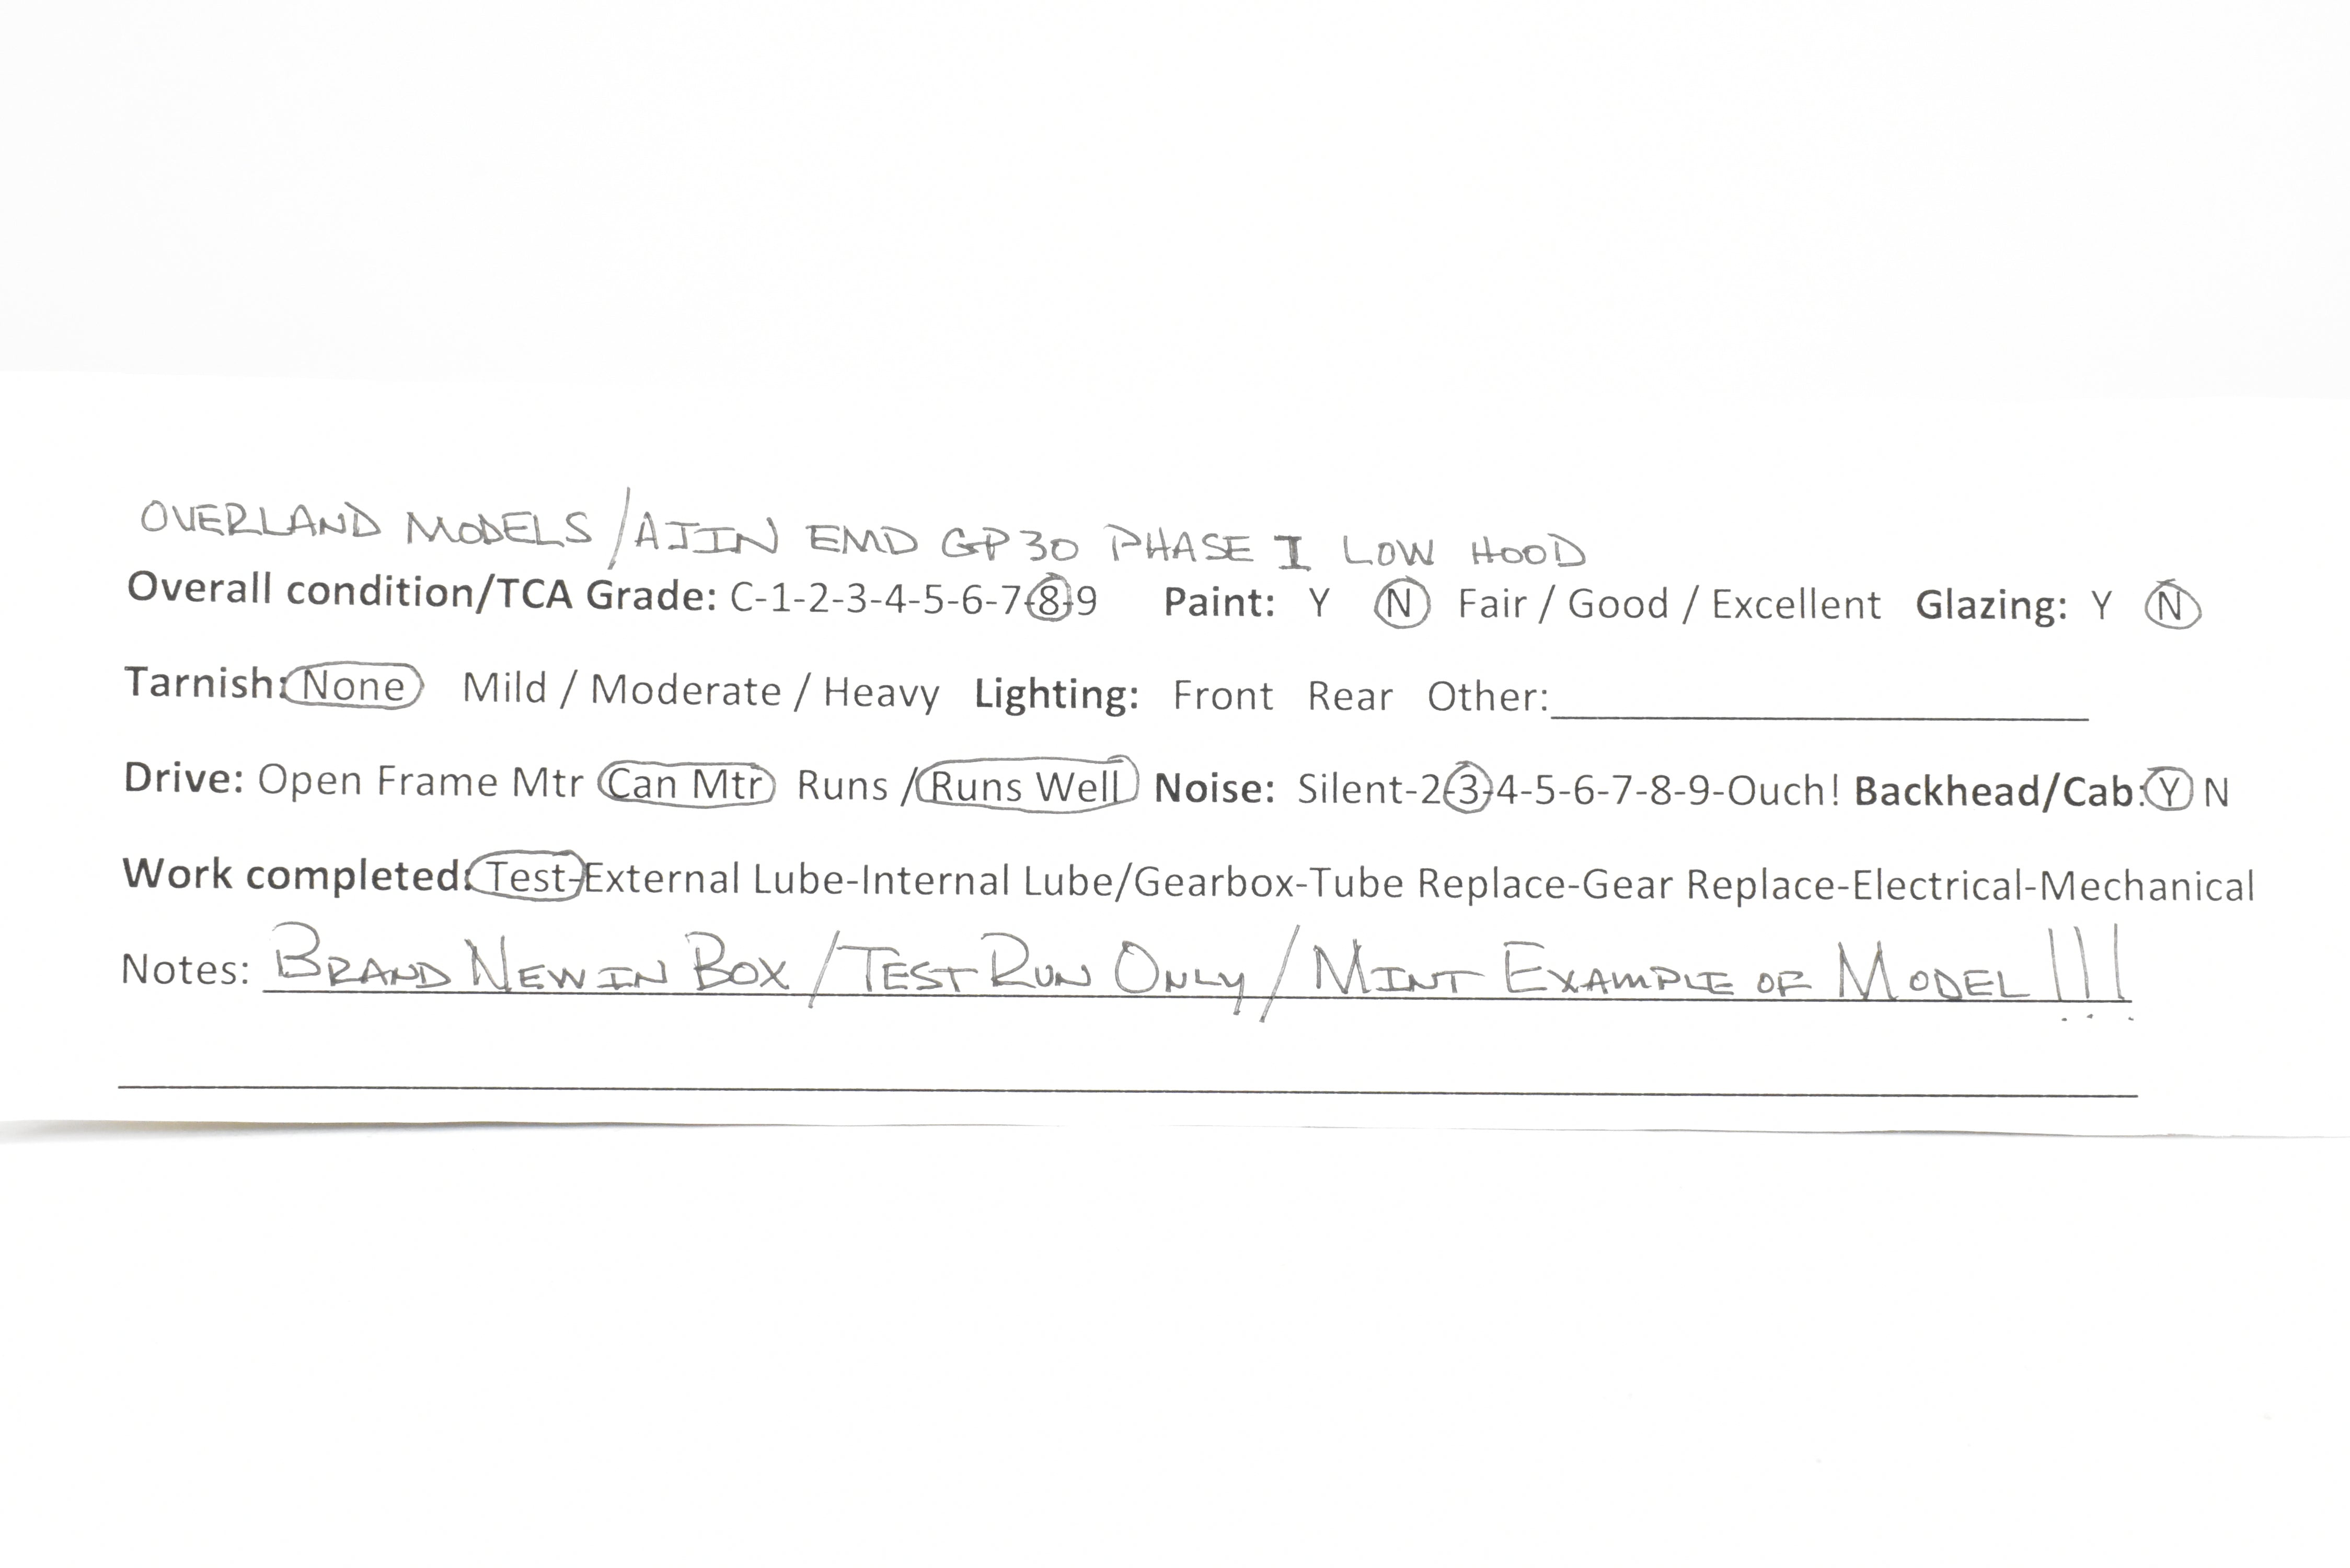 OVERLAND MODELS/AJIN EMD GP30 PHASE I LOW HOOD
Overall condition/TCA Grade: C-1-2-3-4-5-6-7-8-9 Paint: Y N Fair / Good / Excellent Glazing: Y N
Tarnish: None Mild / Moderate / Heavy Lighting: Front Rear Other:
Drive: Open Frame Mtr Can Mtr Runs / Runs Well Noise: Silent-2-3-4-5-6-7-8-9-Ouch! Backhead/Cab: Y N
Work completed: Test-External Lube-Internal Lube/Gearbox-Tube Replace-Gear Replace-Electrical-Mechanical
Notes: BRAND NEW IN BOX / TEST RUN ONLY / MINT EXAMPLE OF MODEL!!!